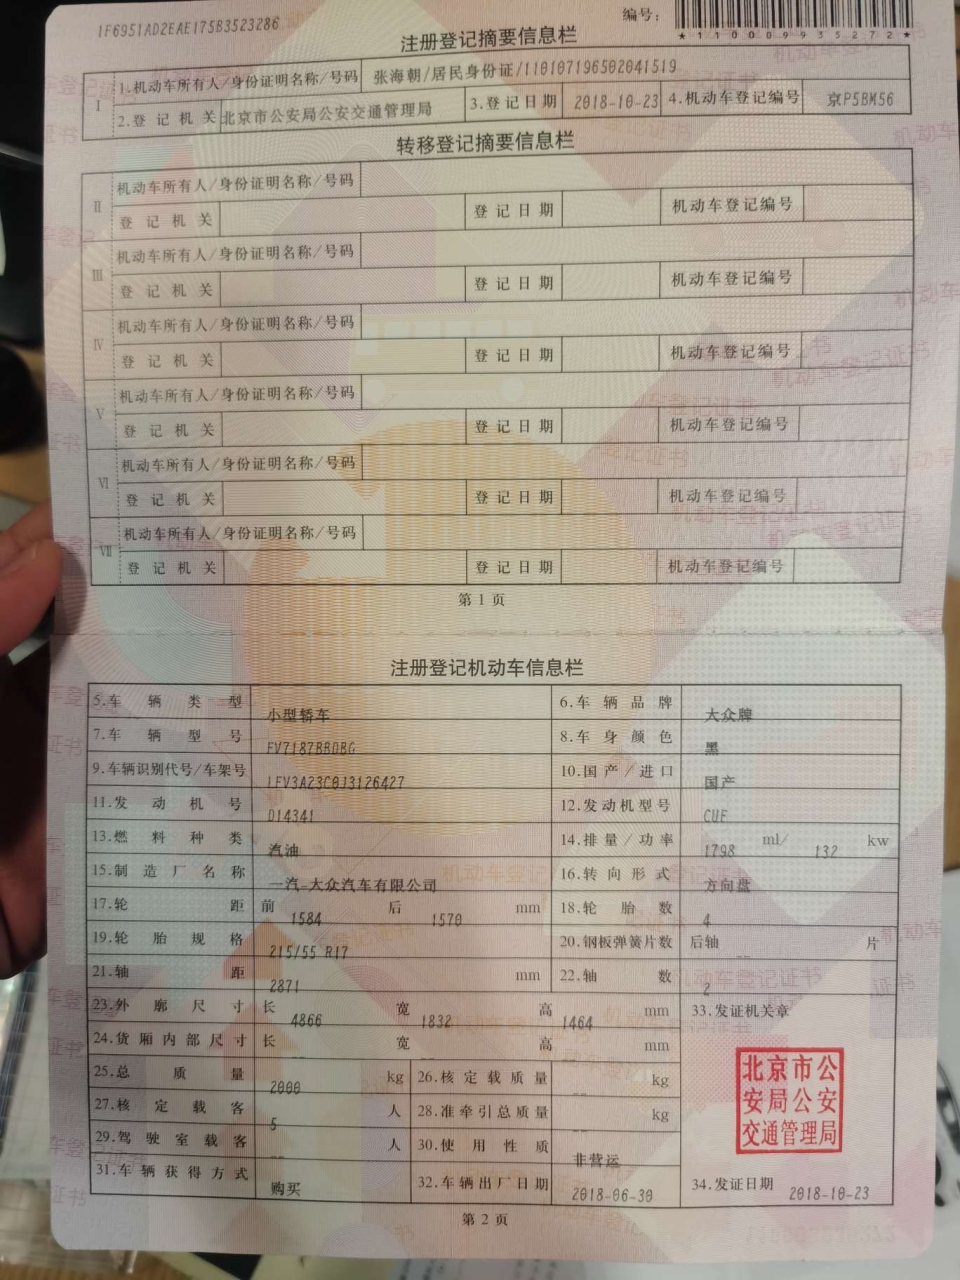 1F6951AD2EAE175B3523286
编号：
*110009935272*
注册登记摘要信息栏
I
1.机动车所有人/身份证明名称/号码 张海朝/居民身份证/110107196502041519
2.登记机关 北京市公安局公安交通管理局 3.登记日期 2018-10-23 4.机动车登记编号 京P5BM56
转移登记摘要信息栏
II
机动车所有人/身份证明名称/号码
登记机关 登记日期 机动车登记编号
III
机动车所有人/身份证明名称/号码
登记机关 登记日期 机动车登记编号
IV
机动车所有人/身份证明名称/号码
登记机关 登记日期 机动车登记编号
V
机动车所有人/身份证明名称/号码
登记机关 登记日期 机动车登记编号
VI
机动车所有人/身份证明名称/号码
登记机关 登记日期 机动车登记编号
VII
机动车所有人/身份证明名称/号码
登记机关 登记日期 机动车登记编号
第1页
注册登记机动车信息栏
5.车辆类型 小型轿车 6.车辆品牌 大众牌
7.车辆型号 FV7187BBDBG 8.车身颜色 黑
9.车辆识别代号/车架号 LFV3A23C0J3126427 10.国产/进口 国产
11.发动机号 D14341 12.发动机型号 CUF
13.燃料种类 汽油 14.排量/功率 1798 ml/ 132 kw
15.制造厂名称 一汽-大众汽车有限公司 16.转向形式 方向盘
17.轮距 前 1584 后 1570 mm 18.轮胎数 4
19.轮胎规格 215/55 R17 20.钢板弹簧片数 后轴 -- 片
21.轴距 2871 mm 22.轴数 2
23.外廓尺寸 长 4866 宽 1832 高 1464 mm 33.发证机关章
24.货厢内部尺寸 长 -- 宽 -- 高 -- mm
25.总质量 2000 kg 26.核定载质量 -- kg
27.核定载客 5 人 28.准牵引总质量 -- kg
29.驾驶室载客 -- 人 30.使用性质 非营运
31.车辆获得方式 购买 32.车辆出厂日期 2018-06-30 34.发证日期 2018-10-23
北京市公
安局公安
交通管理局
第2页